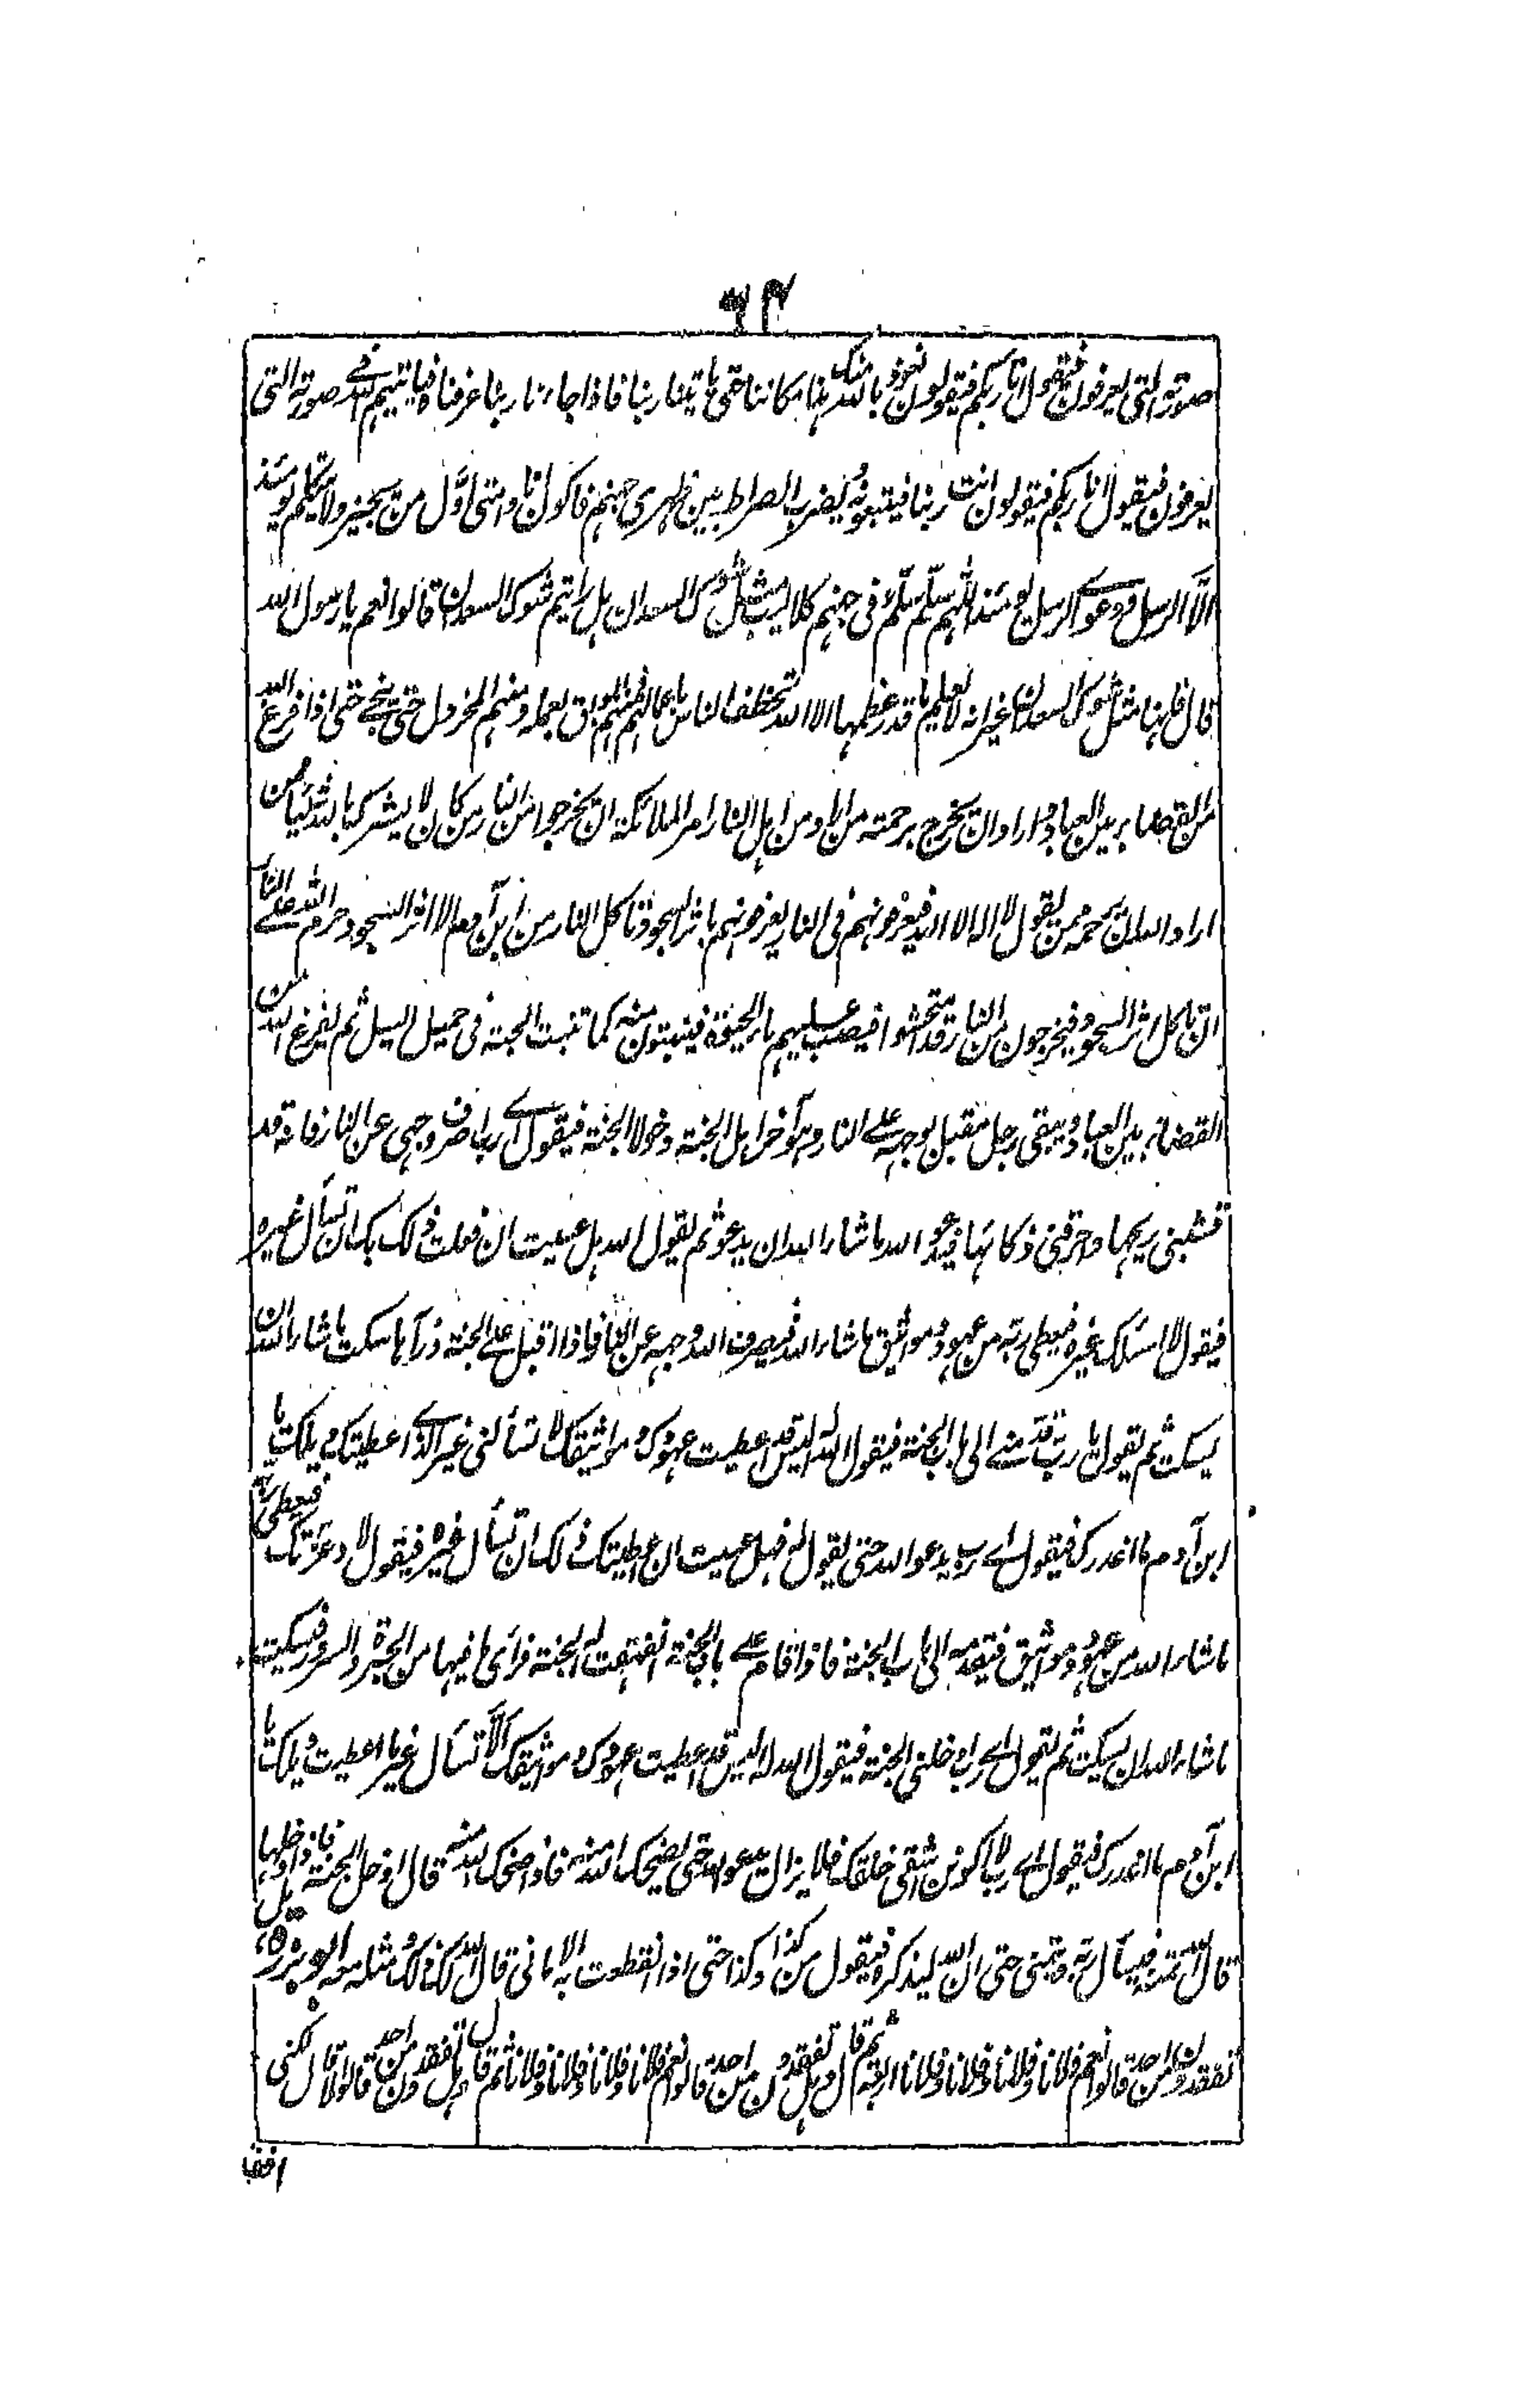 صورته التی یعرفون فیقول انا ربکم فیقولون نعوذ بالله منک هذا مکاننا حتی یاتینا ربنا فاذا جاءنا ربنا عرفناه فیاتیهم الله فی صورته التی
یعرفون فیقول انا ربکم فیقولون انت ربنا فیتبعونه و یضرب الصراط بین ظهری جهنم فاکون انا و امتی اول من یجیز ولا یتکلم یومئذ
الا الرسل و دعوی الرسل یومئذ اللهم سلم سلم و فی جهنم کلالیب مثل شوک السعدان هل رایتم شوک السعدان قالوا نعم یا رسول الله
قال فانها مثل شوک السعدان غیر انه لا یعلم ما قدر عظمها الا الله تخطف الناس باعمالهم فمنهم الموبق بعمله و منهم المخردل حتی ینجی حتی اذا فرغ الله
من القضاء بین العباد و اراد ان یخرج برحمته من اراد من اهل النار امر الملائکة ان یخرجوا من النار من کان لا یشرک بالله شیئا ممن
اراد الله ان یرحمه ممن یقول لا اله الا الله فیعرفونهم فی النار یعرفونهم باثر السجود تاکل النار من ابن آدم الا اثر السجود و حرم الله علی النار
ان تاکل اثر السجود فیخرجون من النار قد امتحشوا فیصب علیهم ماء الحیوة فینبتون منه کما تنبت الحبة فی حمیل السیل ثم یفرغ الله من
القضاء بین العباد و یبقی رجل مقبل بوجهه علی النار و هو آخر اهل الجنة دخولا الجنة فیقول ای رب اصرف وجهی عن النار فانه قد
قشبنی ریحها و احرقنی ذکائها فیدعو الله ما شاء الله ان یدعو ثم یقول الله هل عسیت ان فعلت ذلک بک ان تسأل غیره
فیقول لا اسئلک غیره فیعطی ربه من عهود و مواثیق ما شاء الله فیصرف الله وجهه عن النار فاذا اقبل علی الجنة و رآها سکت ما شاء الله ان
یسکت ثم یقول یا رب قدمنی الی باب الجنة فیقول الله له الیس قد اعطیت عهودک و مواثیقک لا تسألنی غیر الذی اعطیتک ویلک یا
ابن آدم ما اغدرک فیقول ای رب یدعو الله حتی یقول له فهل عسیت ان اعطیتک ذلک ان تسأل غیره فیقول لا و عزتک فیعطی ربه
ما شاء الله من عهود و مواثیق فیقدمه الی باب الجنة فاذا قام علی باب الجنة انفهقت له الجنة فرأی ما فیها من الحبرة و السرور فیسکت
ما شاء الله ان یسکت ثم یقول ای رب ادخلنی الجنة فیقول الله له الیس قد اعطیت عهودک و مواثیقک الا تسأل غیر ما اعطیت ویلک یا
ابن آدم ما اغدرک فیقول ای رب لا اکونن اشقی خلقک فلا یزال یدعو الله حتی یضحک الله منه فاذا ضحک الله منه قال ادخل الجنة فاذا دخلها
قال الله تمنه فیسأل ربه و یتمنی حتی ان الله لیذکره فیقول من کذا و کذا حتی اذا انقطعت به الامانی قال الله لک ذلک و مثله معه ابو برزة هل
تفقدون من احد قالوا نعم فلانا و فلانا و فلانا و فلانا ثم قال هل تفقدون من احد قالوا نعم فلانا و فلانا و فلانا و فلانا ثم قال هل تفقدون من احد قالوا لا قال لکنی
افقد